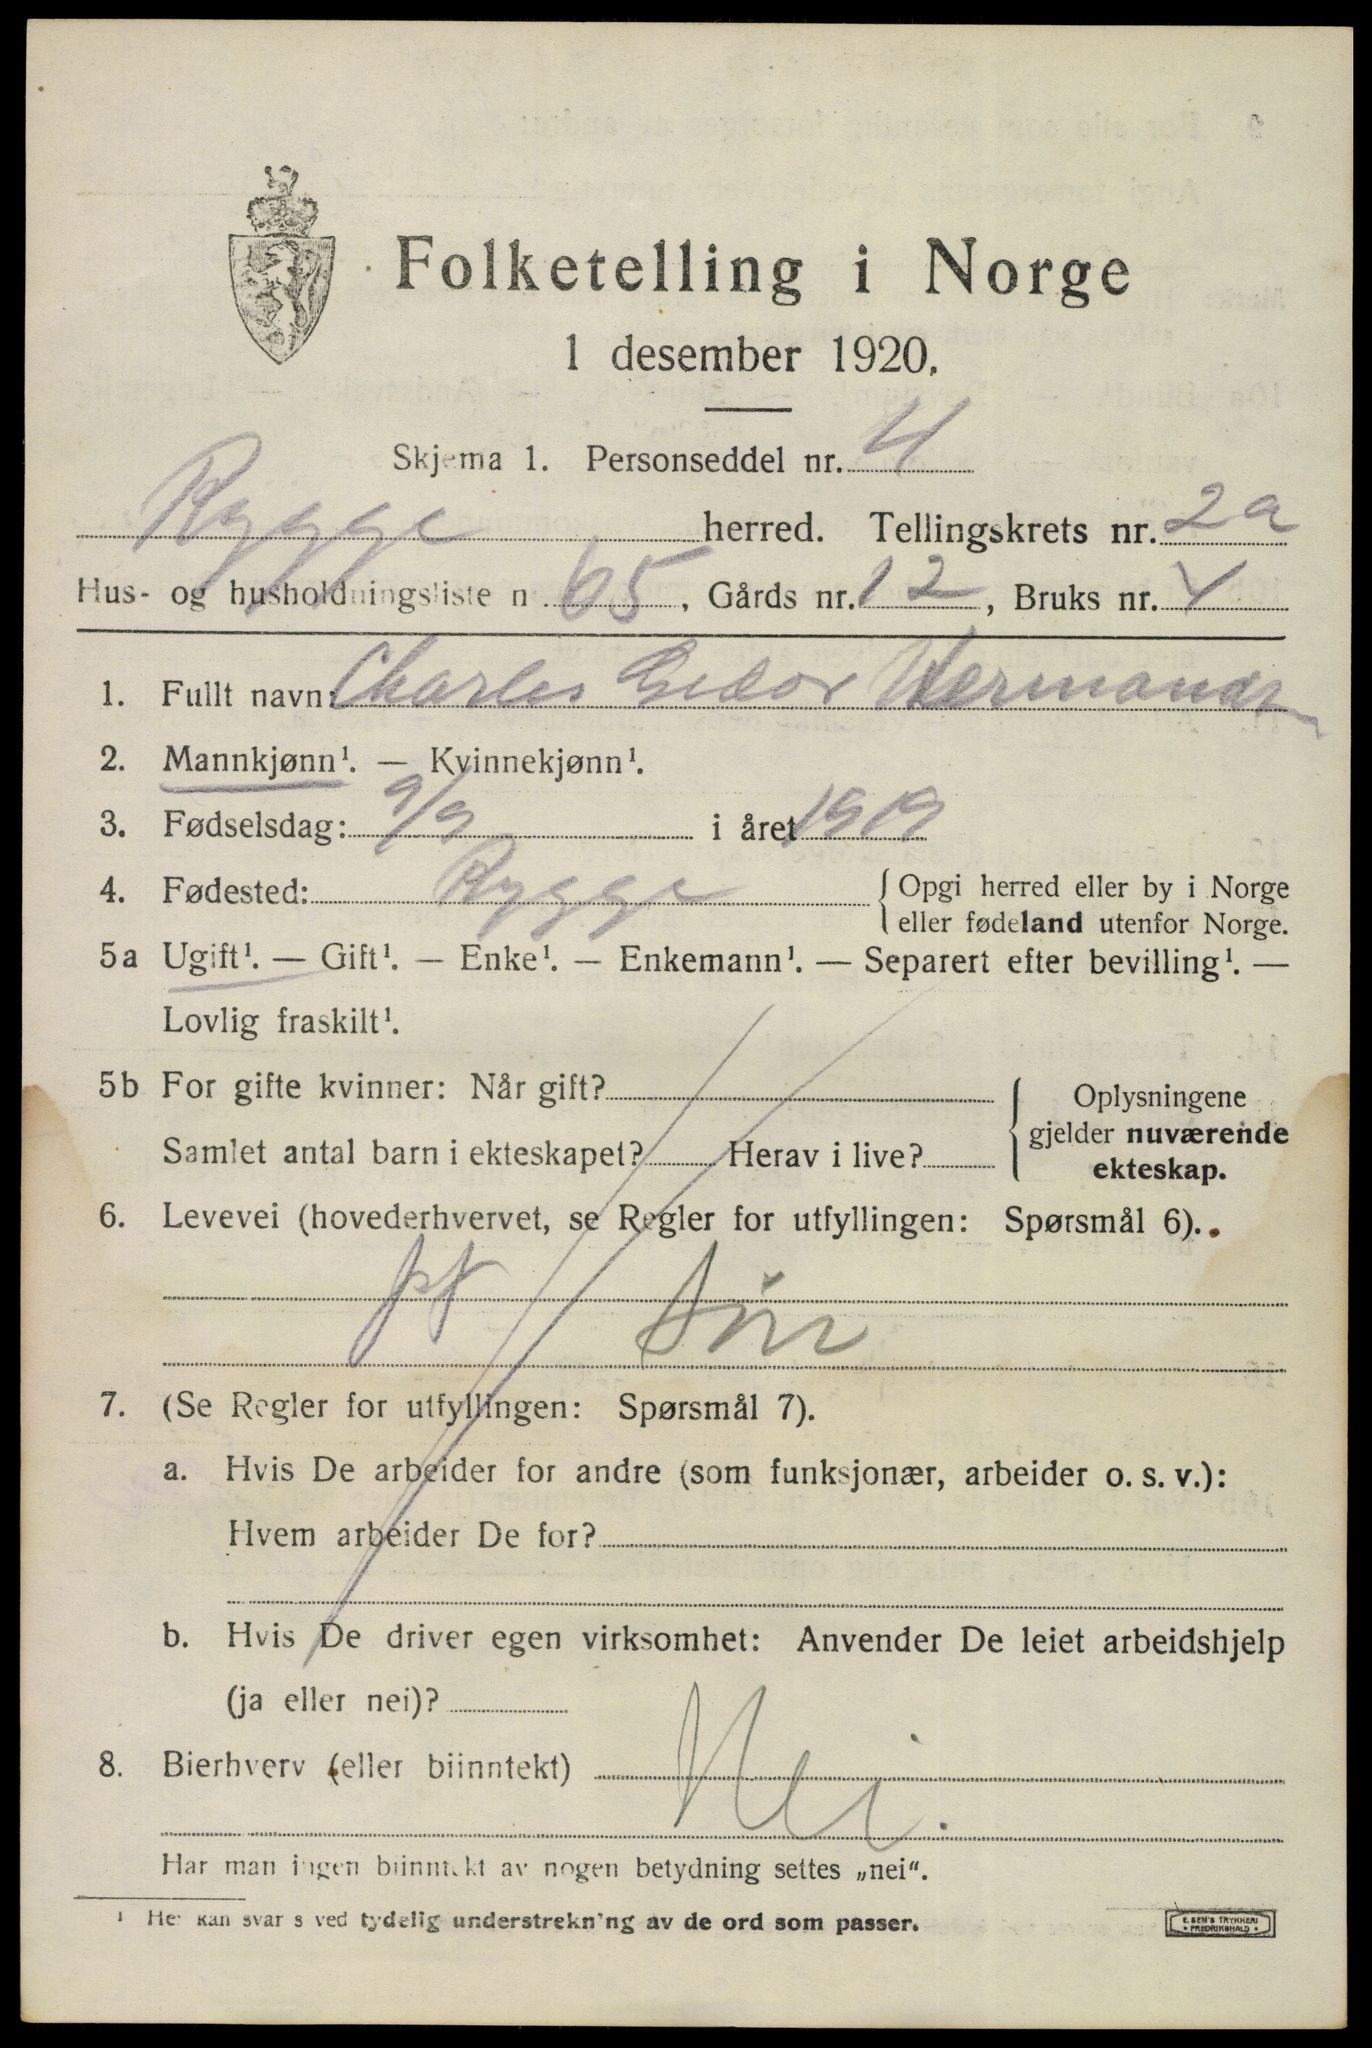 Folketelling i Norge
1 desember 1920.
Skjema 1. Personseddel nr. 4
Rygge herred. Tellingskrets nr. 2a
Hus- og husholdningsliste n 65, Gårds nr. 12, Bruks nr. 4
1. Fullt navn: Charles Hermands
2. Mannkjønn¹. — Kvinnekjønn¹.
3. Fødselsdag: 9/9 i året 1919
4. Fødested: Rygge {Opgi herred eller by i Norge
eller fødeland utenfor Norge.
5a Ugift¹. — Gift¹. — Enke¹. — Enkemann¹. — Separert efter bevilling¹. —
Lovlig fraskilt¹.
5b For gifte kvinner: Når gift? {Oplysningene
gjelder nuværende
ekteskap.
Samlet antal barn i ekteskapet? Herav i live?
6. Levevei (hovederhvervet, se Regler for utfyllingen: Spørsmål 6).
Søn
7. (Se Regler for utfyllingen: Spørsmål 7).
a. Hvis De arbeider for andre (som funksjonær, arbeider o. s. v.):
Hvem arbeider De for?
b. Hvis De driver egen virksomhet: Anvender De leiet arbeidshjelp
(ja eller nei)?
8. Bierhverv (eller biinntekt) Nei.
Har man ingen biinntekt av nogen betydning settes „nei“.
¹ Her kan svar s ved tydelig understrekn'ng av de ord som passer.
E. SEM'S TRYKKERI
• FREDRIKSHALD •